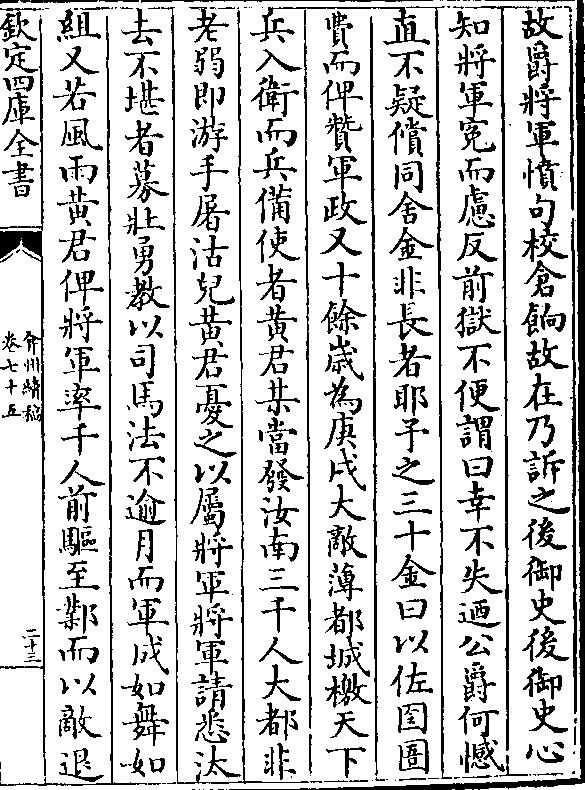 故爵將軍憤句校倉餉故在乃訴之後御史後御史心
知將軍冤而慮反前獄不便謂曰幸不失迺公爵何憾
直不疑償同舍金非長者耶予之三十金曰以佐囹圄
費而俾贊軍政又十餘歲為庚戌大敵薄都城檄天下
兵入衛而兵備使者黃君某當發汝南三千人大都非
老弱即游手屠沽兒黃君憂之以屬將軍將軍請悉汰
去不堪者募壯勇教以司馬法不逾月而軍成如舞如
組又若風雨黃君俾將軍率千人前驅至鄴而以敵退
欽定四庫全書
弇州續稿
卷七十五
二十三